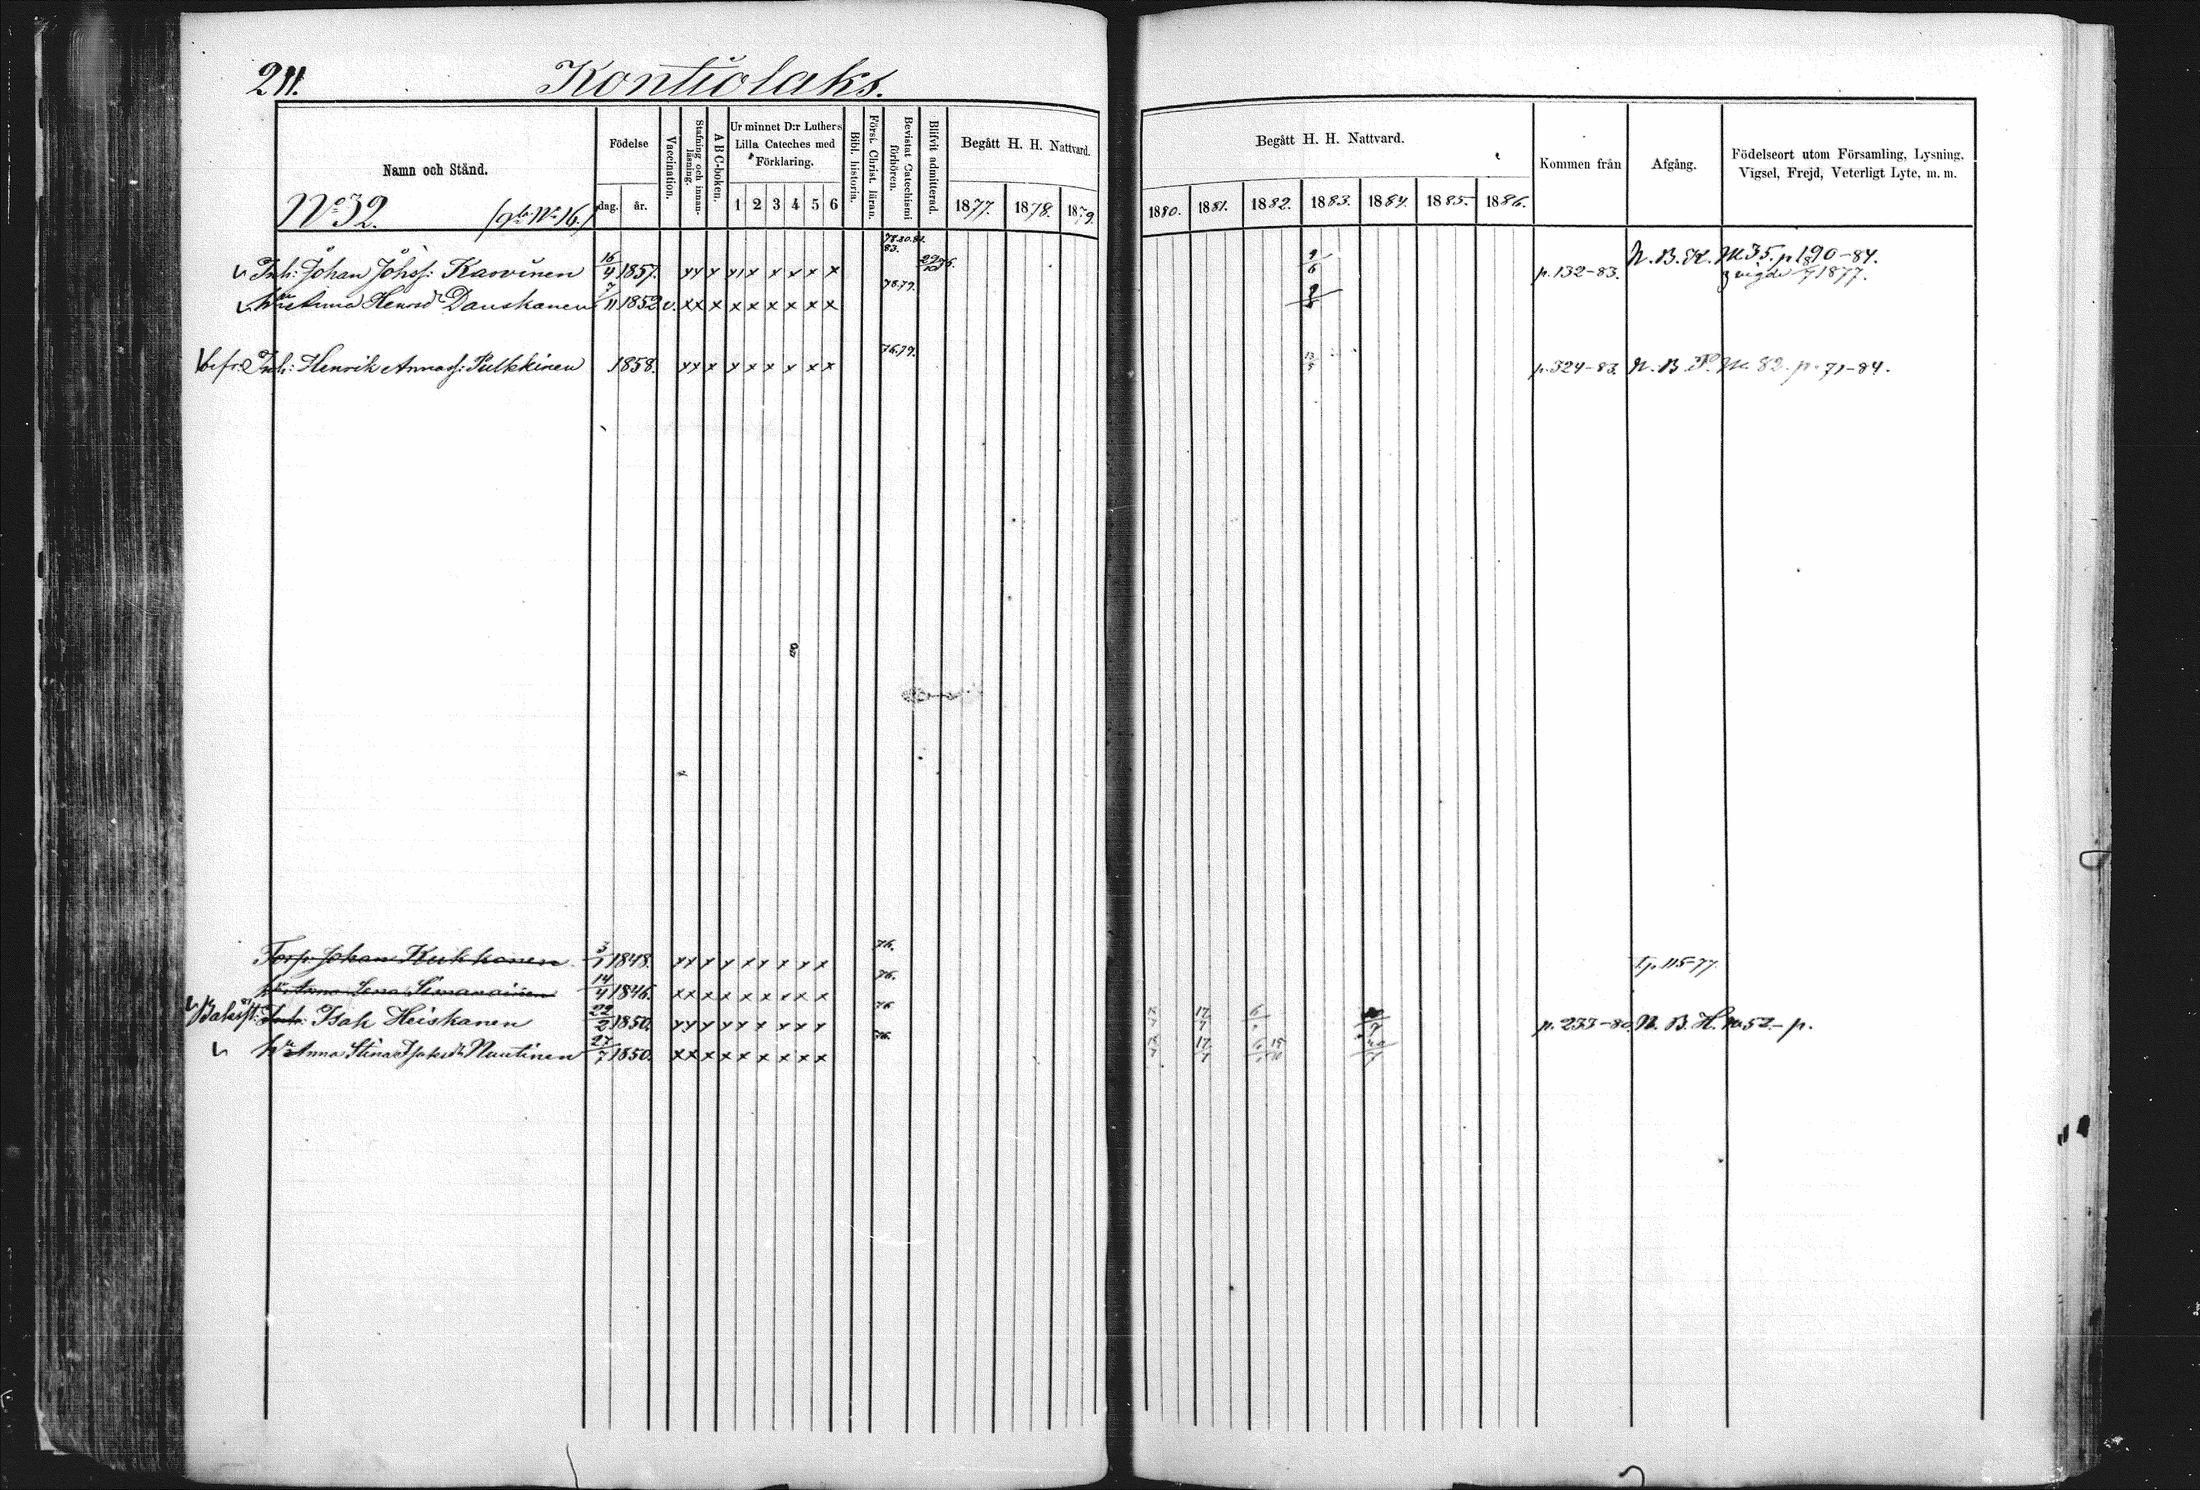 211.
Kontiolaks.
Namn och Stånd.
No 32.
Födelse
dag.
år.
Vaccination.
Stafning och innan-
läsning.
ABC-boken.
Ur minnet D:r Luthers
Lilla Cateches med
Förklaring.
1 2 3 4 5 6
Bibl. historia.
Förs. Christ. läran.
Bevistat Catechismi
förhören.
Blifvit admitterad.
Begått H. H. Nattvard.
1877. 1878. 1879.
Begått H. H. Nattvard.
1880. 1881. 1882. 1883. 1884. 1885. 1886.
Kommen från
Afgång.
Födelseort utom Församling, Lysning,
Vigsel, Frejd, Veterligt Lyte, m. m.
Inh: Johan Johss: Karvinen 16/4 1857. x x x x x x x x x 9/6 p. 132-83. N. B. K. No 35. p 190-84.
vigde 1877.
Anna Henrsdr Danskanen 7/11 1852 v. x x x x x x x x x 78.79.
Inh: Henrik Annass: Pulkkinen 1858. x x x x x x x x x 76.79. p. 324-83. N. B. No 82. p. 71-84.
Torp: Johan Kukkonen 3/1 1848. x x x x x x x x x 76. t. p. 115-77.
Anna Lena Simanainen 14/4 1846. x x x x x x x x x 76.
Inh: Isak Heiskanen 22/2 1850. x x x x x x x x x 76 17/7 p. 233-80 N. B. H. No 52- p.
Anna Stina Isaksdr Nuutinen 27/7 1850. x x x x x x x x x 76. 17/7